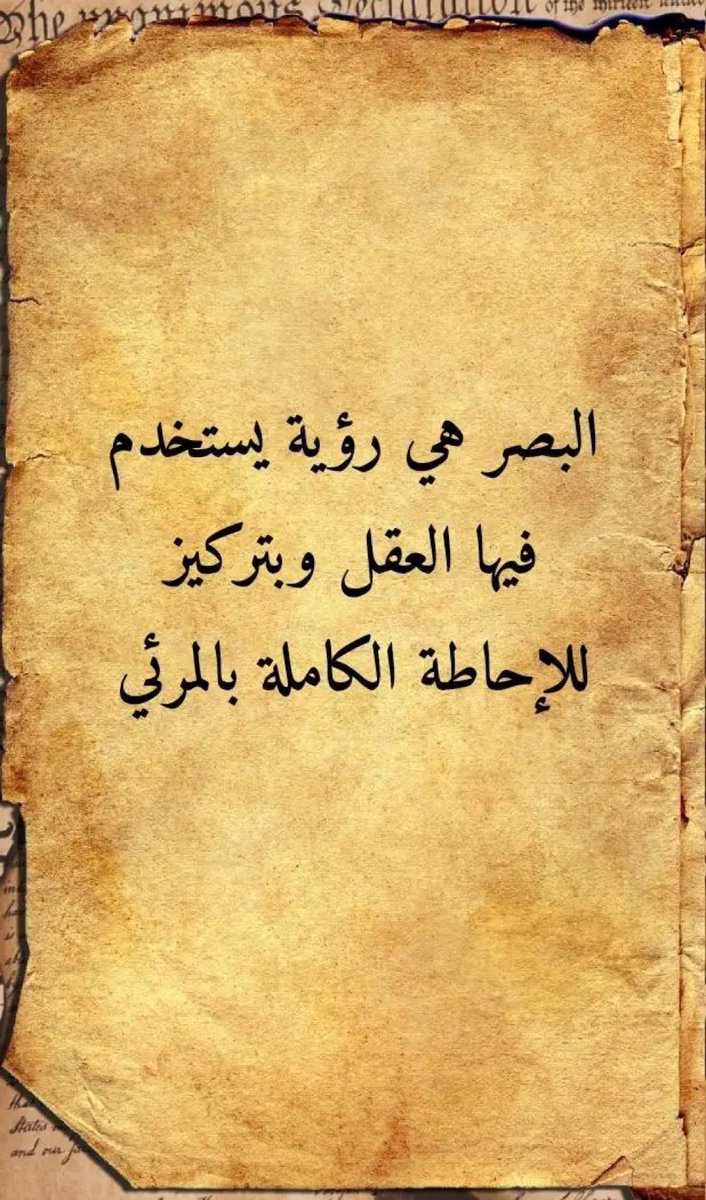 The unanimous Declaration of the thirteen united
البصر هي رؤية يستخدم
فيها العقل وبتركيز
للإحاطة الكاملة بالمرئي
States
and our